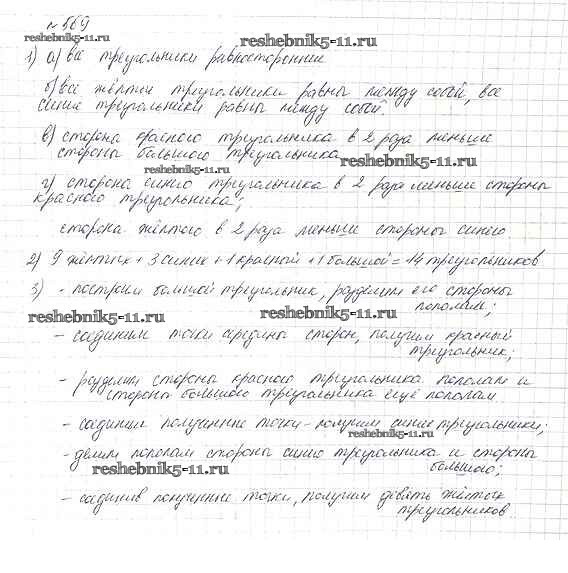 № 569
reshebnik5-11.ru
reshebnik5-11.ru
1) а) все треугольники равносторонние
б) все жёлтые треугольники равны между собой, все
синие треугольники равны между собой.
в) сторона красного треугольника в 2 раза меньше
стороны большого треугольника
reshebnik5-11.ru
reshebnik5-11.ru
г) сторона синего треугольника в 2 раза меньше стороны
красного треугольника;
сторона жёлтого в 2 раза меньше стороны синего
2) 9 жёлтых + 3 синих + 1 красный + 1 большой = 14 треугольников
3) - построим большой треугольник, разделим его стороны
пополам;
reshebnik5-11.ru
reshebnik5-11.ru
- соединим точки середины сторон, получим красный
треугольник;
- разделим стороны красного треугольника пополам и
стороны большого треугольника ещё пополам.
- соединим полученные точки - получим синие треугольники;
reshebnik5-11.ru
- делим пополам стороны синего треугольника и стороны
большого;
reshebnik5-11.ru
- соединив полученные точки, получим девять жёлтых
треугольников.